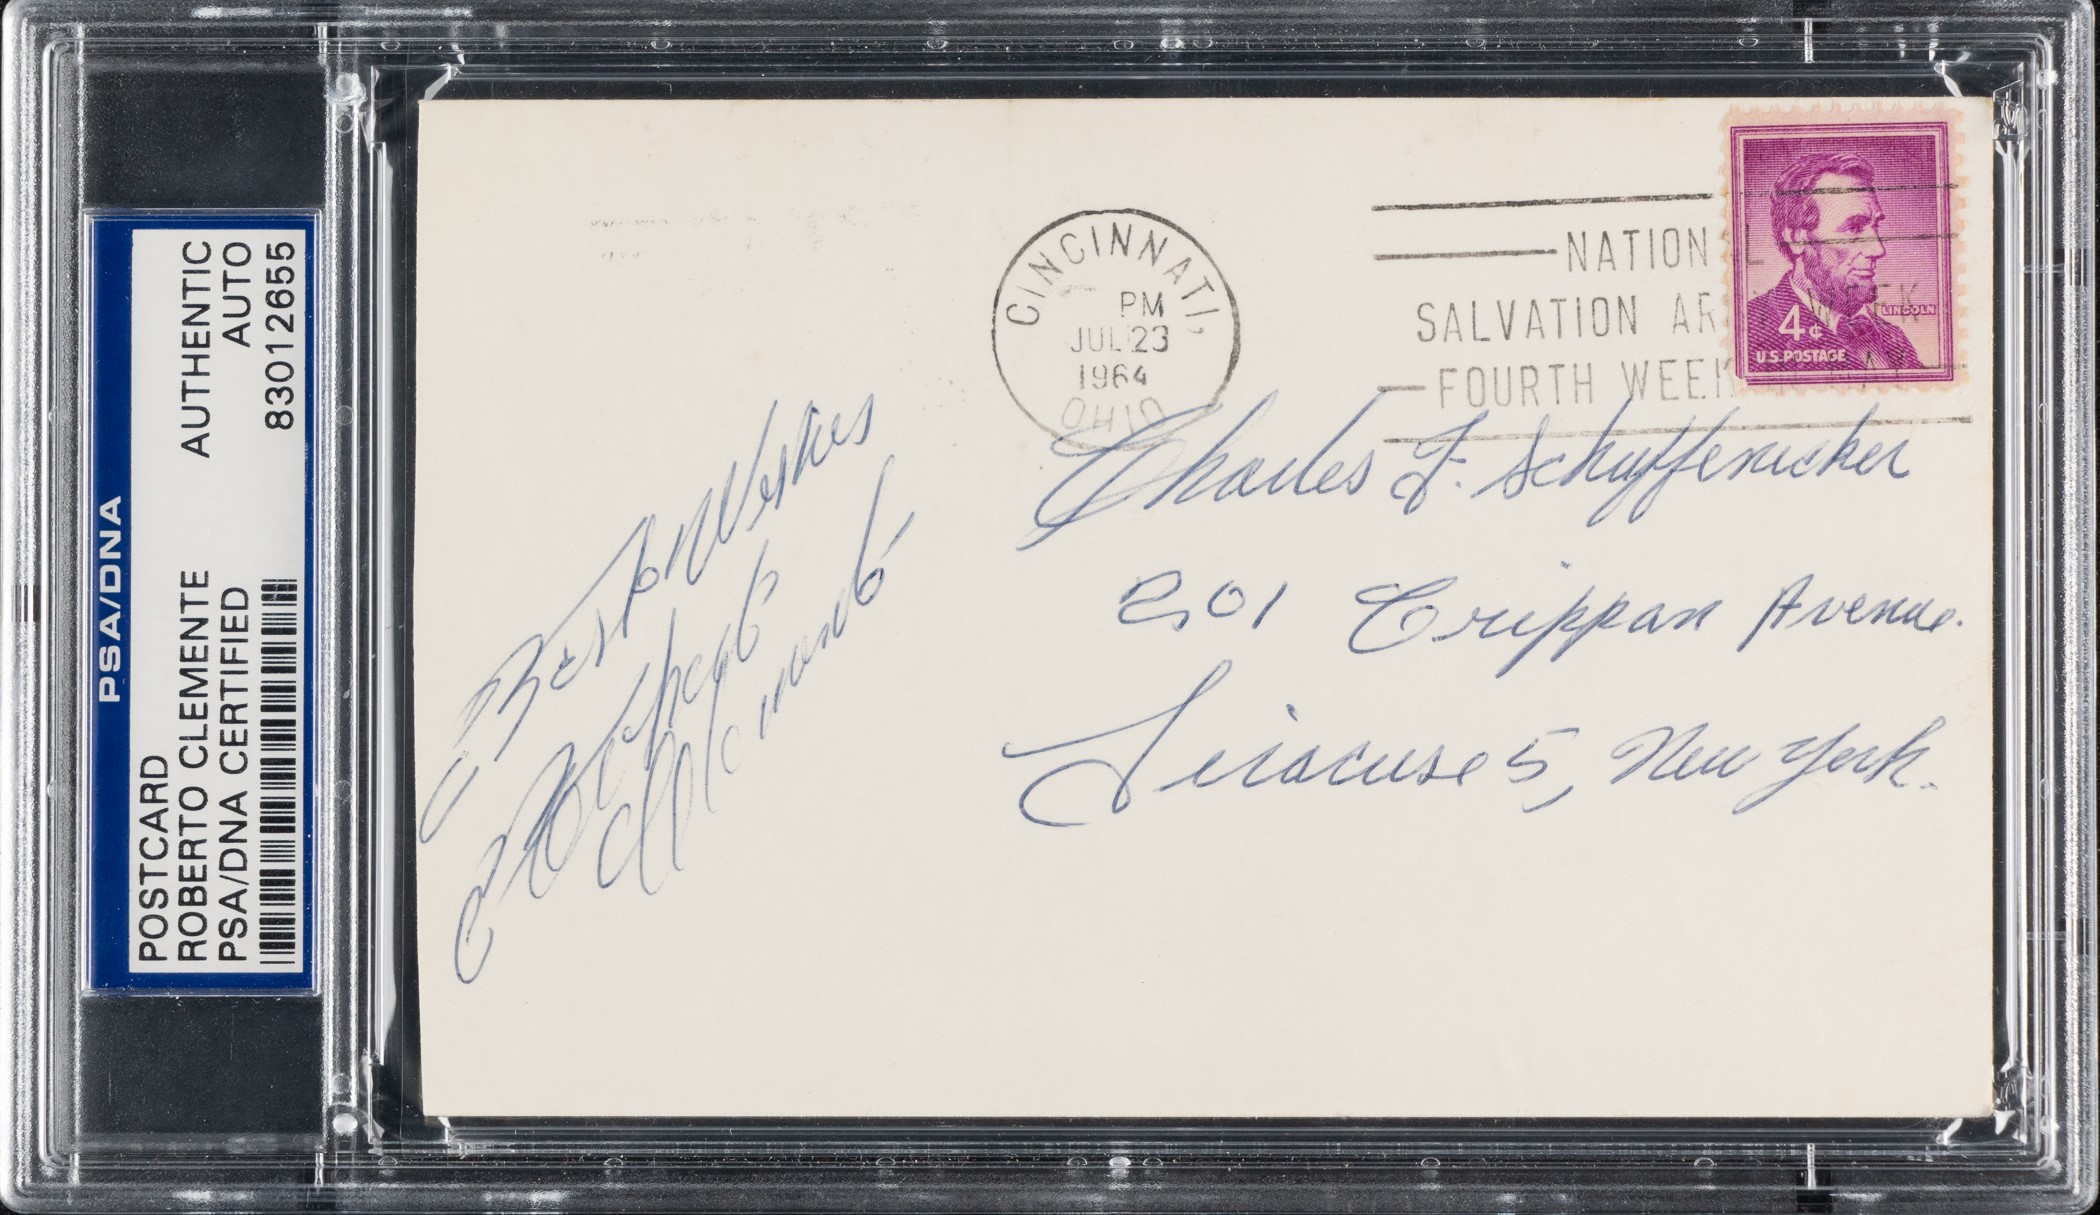 PSA/DNA
POSTCARD
ROBERTO CLEMENTE
PSA/DNA CERTIFIED
AUTHENTIC
AUTO
83012655
CINCINNATI,
PM
JUL 23
1964
OHIO
NATION
SALVATION AR WEEK
FOURTH WEEK MAY
4¢
LINCOLN
U.S.POSTAGE
Best Wishes
Roberto
Clemente
Charles F. Schuffenecker
201 Crippan Avenue.
Siracuse 5, New York.